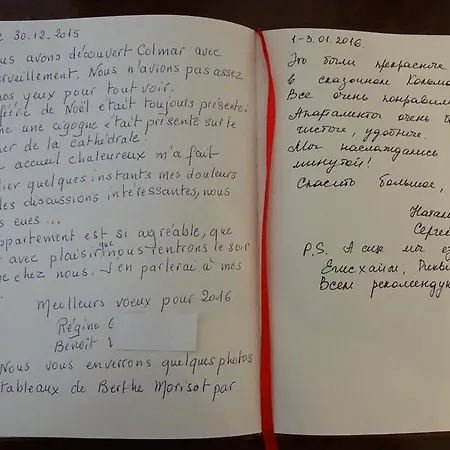 30.12.2015
us avons découvert Colmar avec
erveillement. Nous n'avions pas assez
nos yeux pour tout voir.
féérie de Noël était toujours présente:
ne une cigogne était présente sur le
her de la cathédrale!
accueil chaleureux m'a fait
lier quelques instants mes douleurs
les discussions intéressantes, nous
s eues ...
ppartement est si agréable, que
avec plaisir que nous rentrons le soir
e chez nous. J'en parlerai à mes
Meilleurs voeux pour 2016
Régine
Benoît
Nous vous enverrons quelques photos
tableaux de Berthe Morisot par
1-3.01.2016.
Это были прекрасные
в сказочном Кольма
Все очень понравило
Апартаменты очень
чистые, удобные.
Мы наслаждались
минутой!
Спасибо большое,
Ната
Серге
P.S. А еще мы ез
Эгисхайм, Рикви
Всем рекоменду